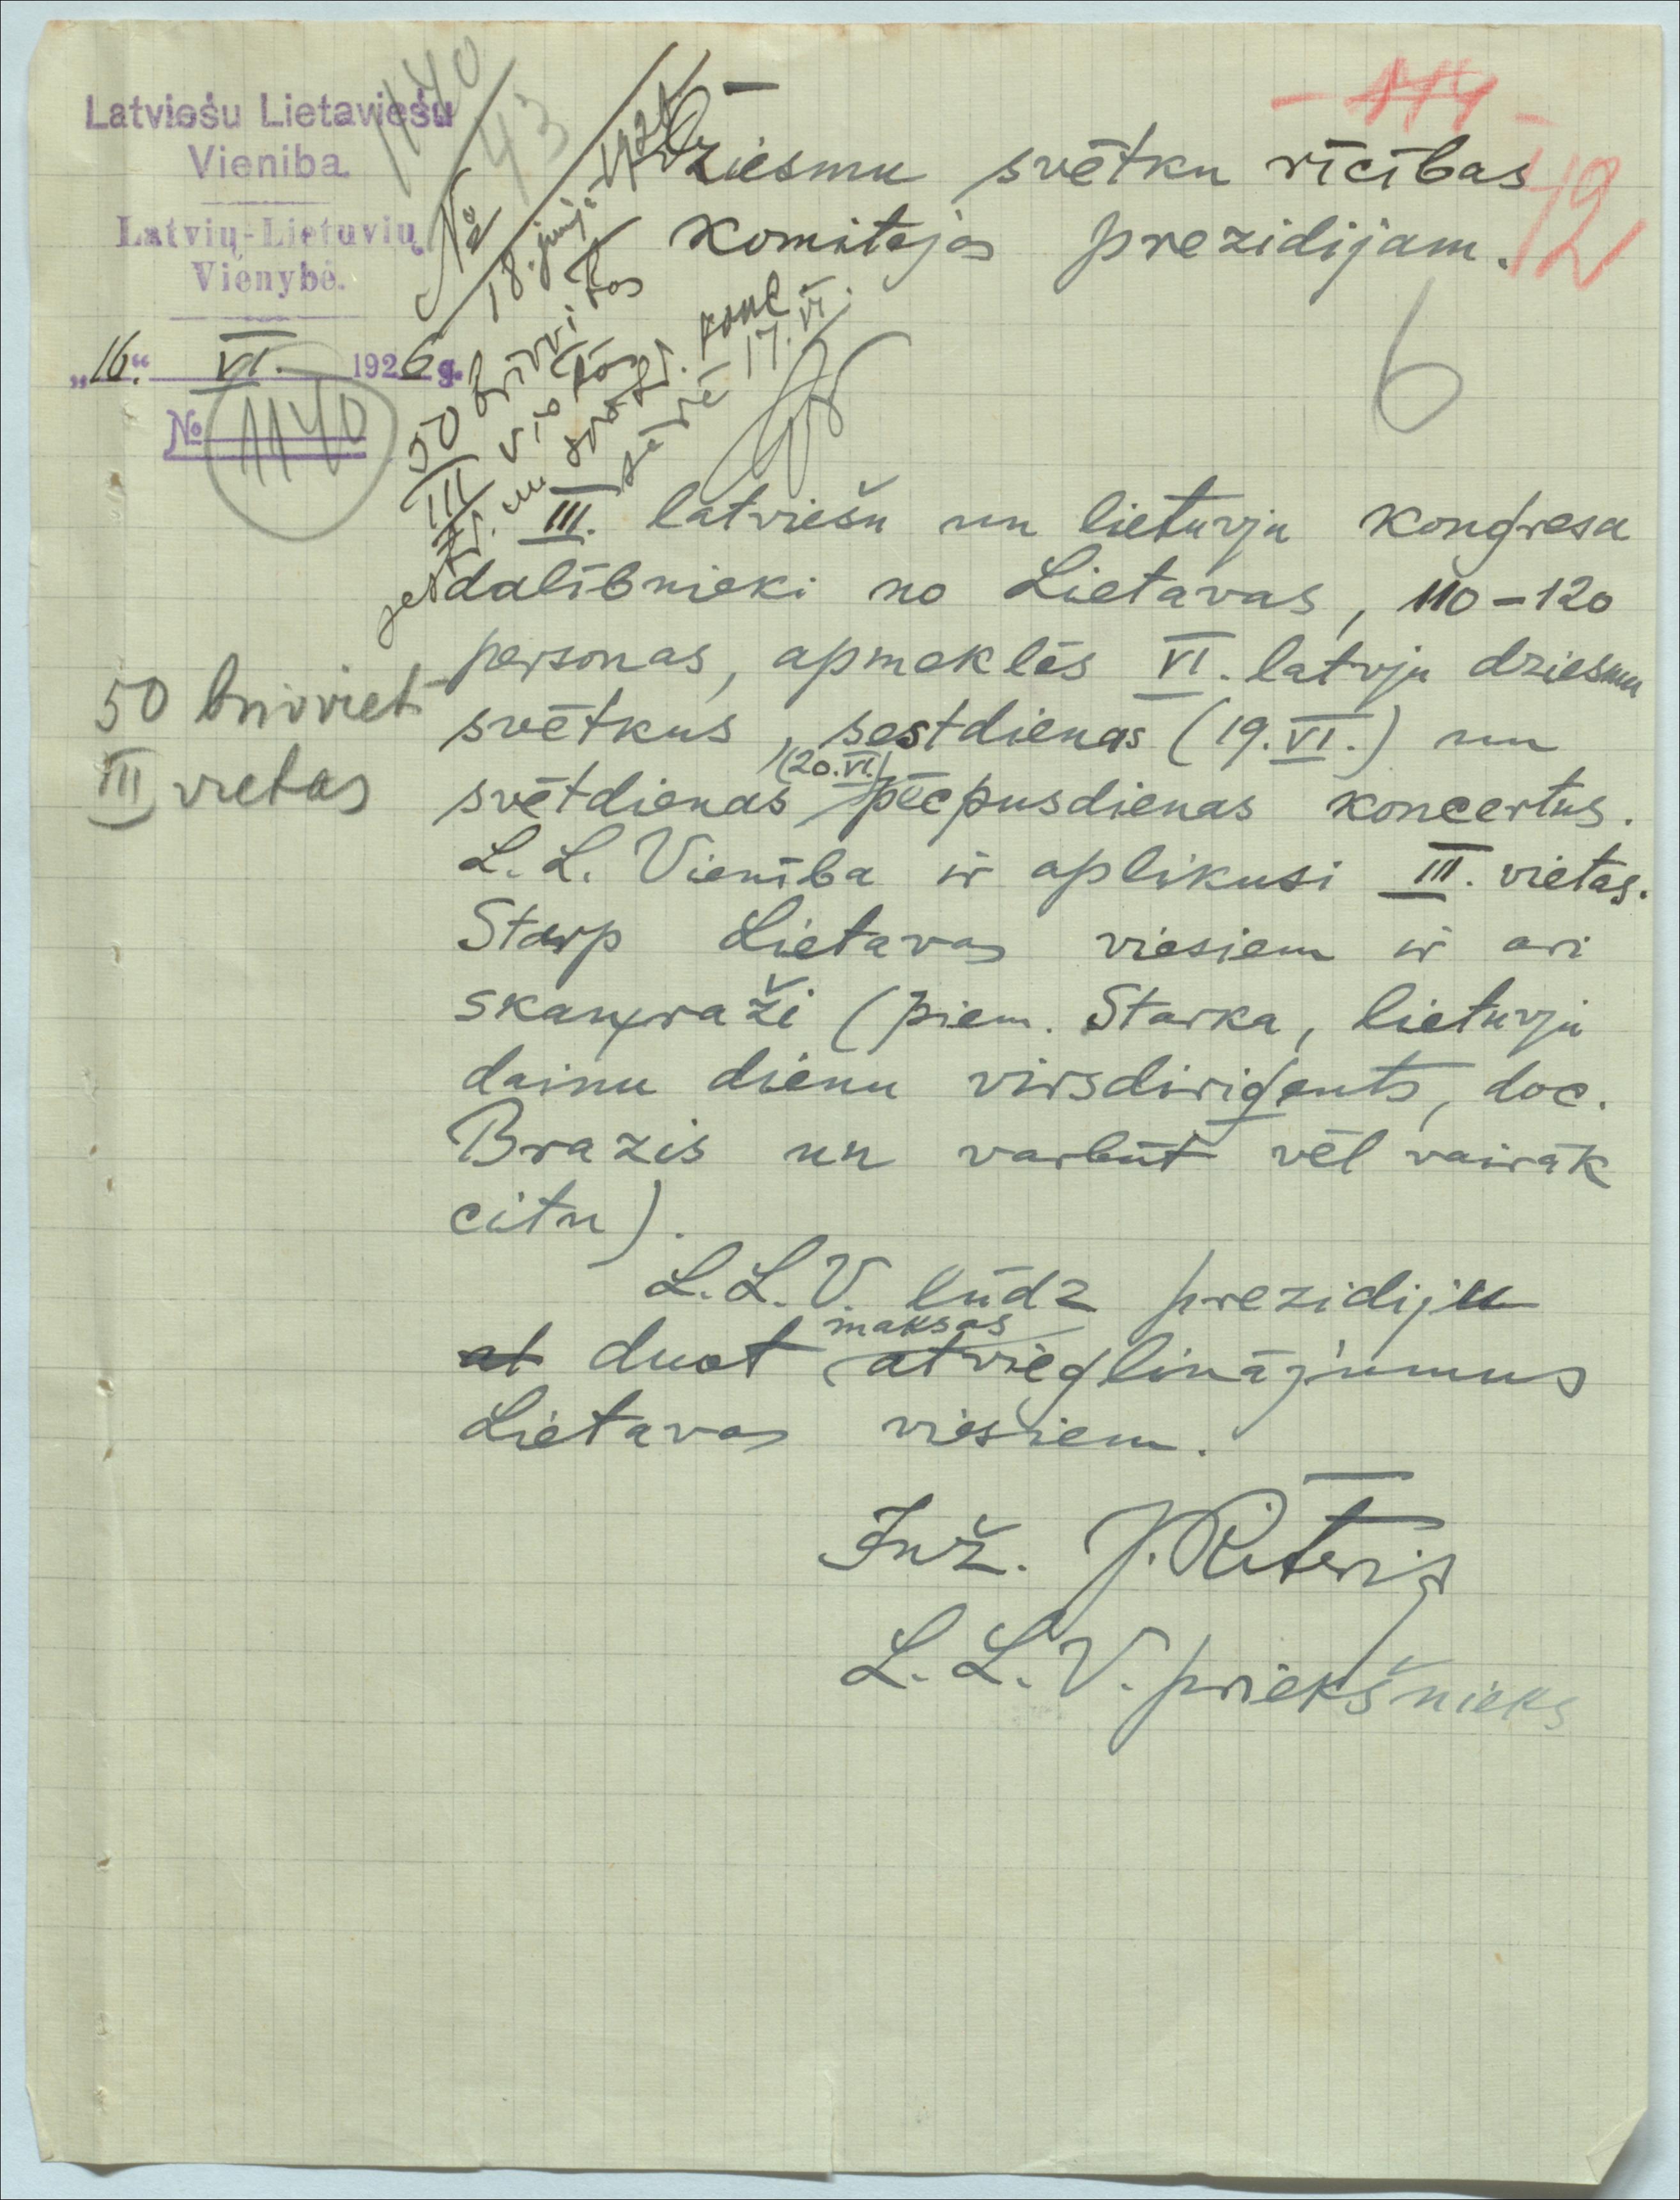 Latviešu Lietaviešu
Vieniba.
Latvių-Lietuvių
Vienybė.
„16.“ VI. 1926 g.
№ 1140
1140
43
- 114 -
12
6
Dziesmu svētku rīcības
komitejas prezidijam.
№
18. junijā 192
50 brīvvietas
III vietās
sestd. un svētd. konc.
sēdē 17.VI.
III. latviešu un lietuvju kongresa
dalībnieki no Lietavas, 110-120
personas, apmeklēs VI. latvju dziesmu
svētkus, sestdienas (19.VI.) un
svētdienas (20.VI.) pēcpusdienas koncertus.
L.L. Vienība ir aplikusi III. vietas.
Starp Lietavas viesiem ir ari
skaņraži (piem. Starka, lietuvju
dainu dienu virsdiriģents, doc.
Brazis un varbūt vēl vairāk
citu).
L.L.V. lūdz prezidiju
at duot maksas atvieglinājumus
Lietavas viesiem.
Inž. J. Riteris
L.L.V. priekšnieks
50 brivviet
III vietas